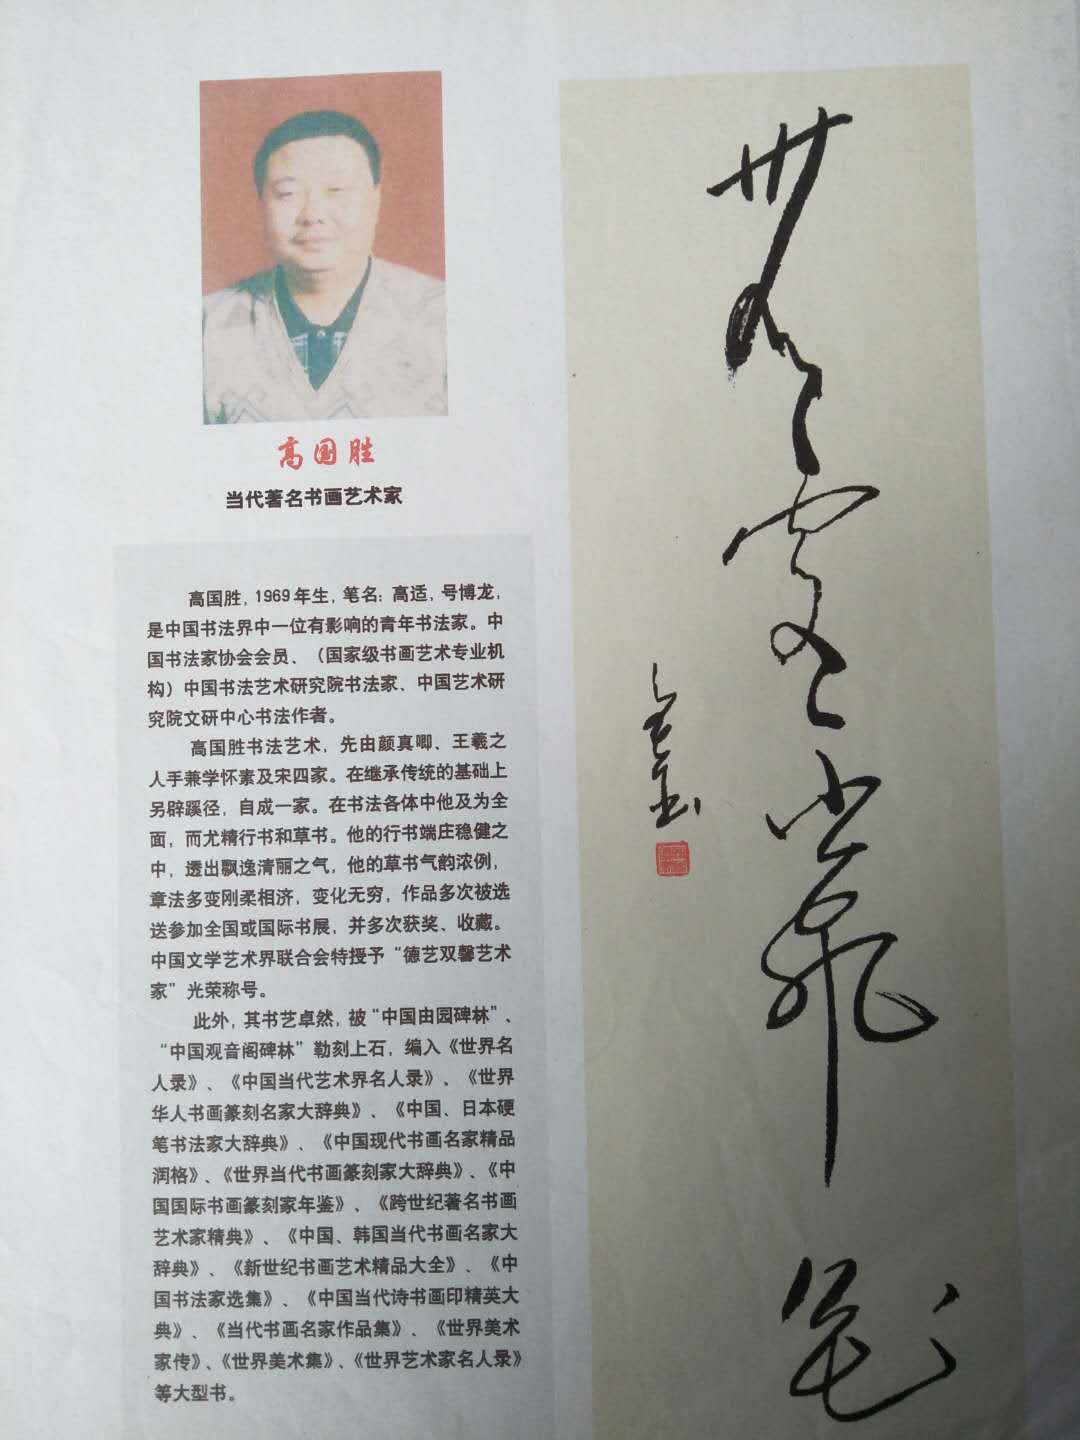 高国胜
当代著名书画艺术家
高国胜，1969年生，笔名：高适，号博龙，
是中国书法界中一位有影响的青年书法家。中
国书法家协会会员、（国家级书画艺术专业机
构）中国书法艺术研究院书法家、中国艺术研
究院文研中心书法作者。
高国胜书法艺术，先由颜真唧、王羲之
人手兼学怀素及宋四家。在继承传统的基础上
另辟蹊径，自成一家。在书法各体中他及为全
面，而尤精行书和草书。他的行书端庄稳健之
中，透出飘逸清丽之气，他的草书气韵浓例，
章法多变刚柔相济，变化无穷，作品多次被选
送参加全国或国际书展，并多次获奖、收藏。
中国文学艺术界联合会特授予“德艺双馨艺术
家”光荣称号。
此外，其书艺卓然，被“中国由园碑林”、
“中国观音阁碑林”勒刻上石，编入《世界名
人录》、《中国当代艺术界名人录》、《世界
华人书画篆刻名家大辞典》、《中国、日本硬
笔书法家大辞典》、《中国现代书画名家精品
润格》、《世界当代书画篆刻家大辞典》、《中
国国际书画篆刻家年鉴》、《跨世纪著名书画
艺术家精典》、《中国、韩国当代书画名家大
辞典》、《新世纪书画艺术精品大全》、《中
国书法家选集》、《中国当代诗书画印精英大
典》、《当代书画名家作品集》、《世界美术
家传》、《世界美术集》、《世界艺术家名人录》
等大型书。